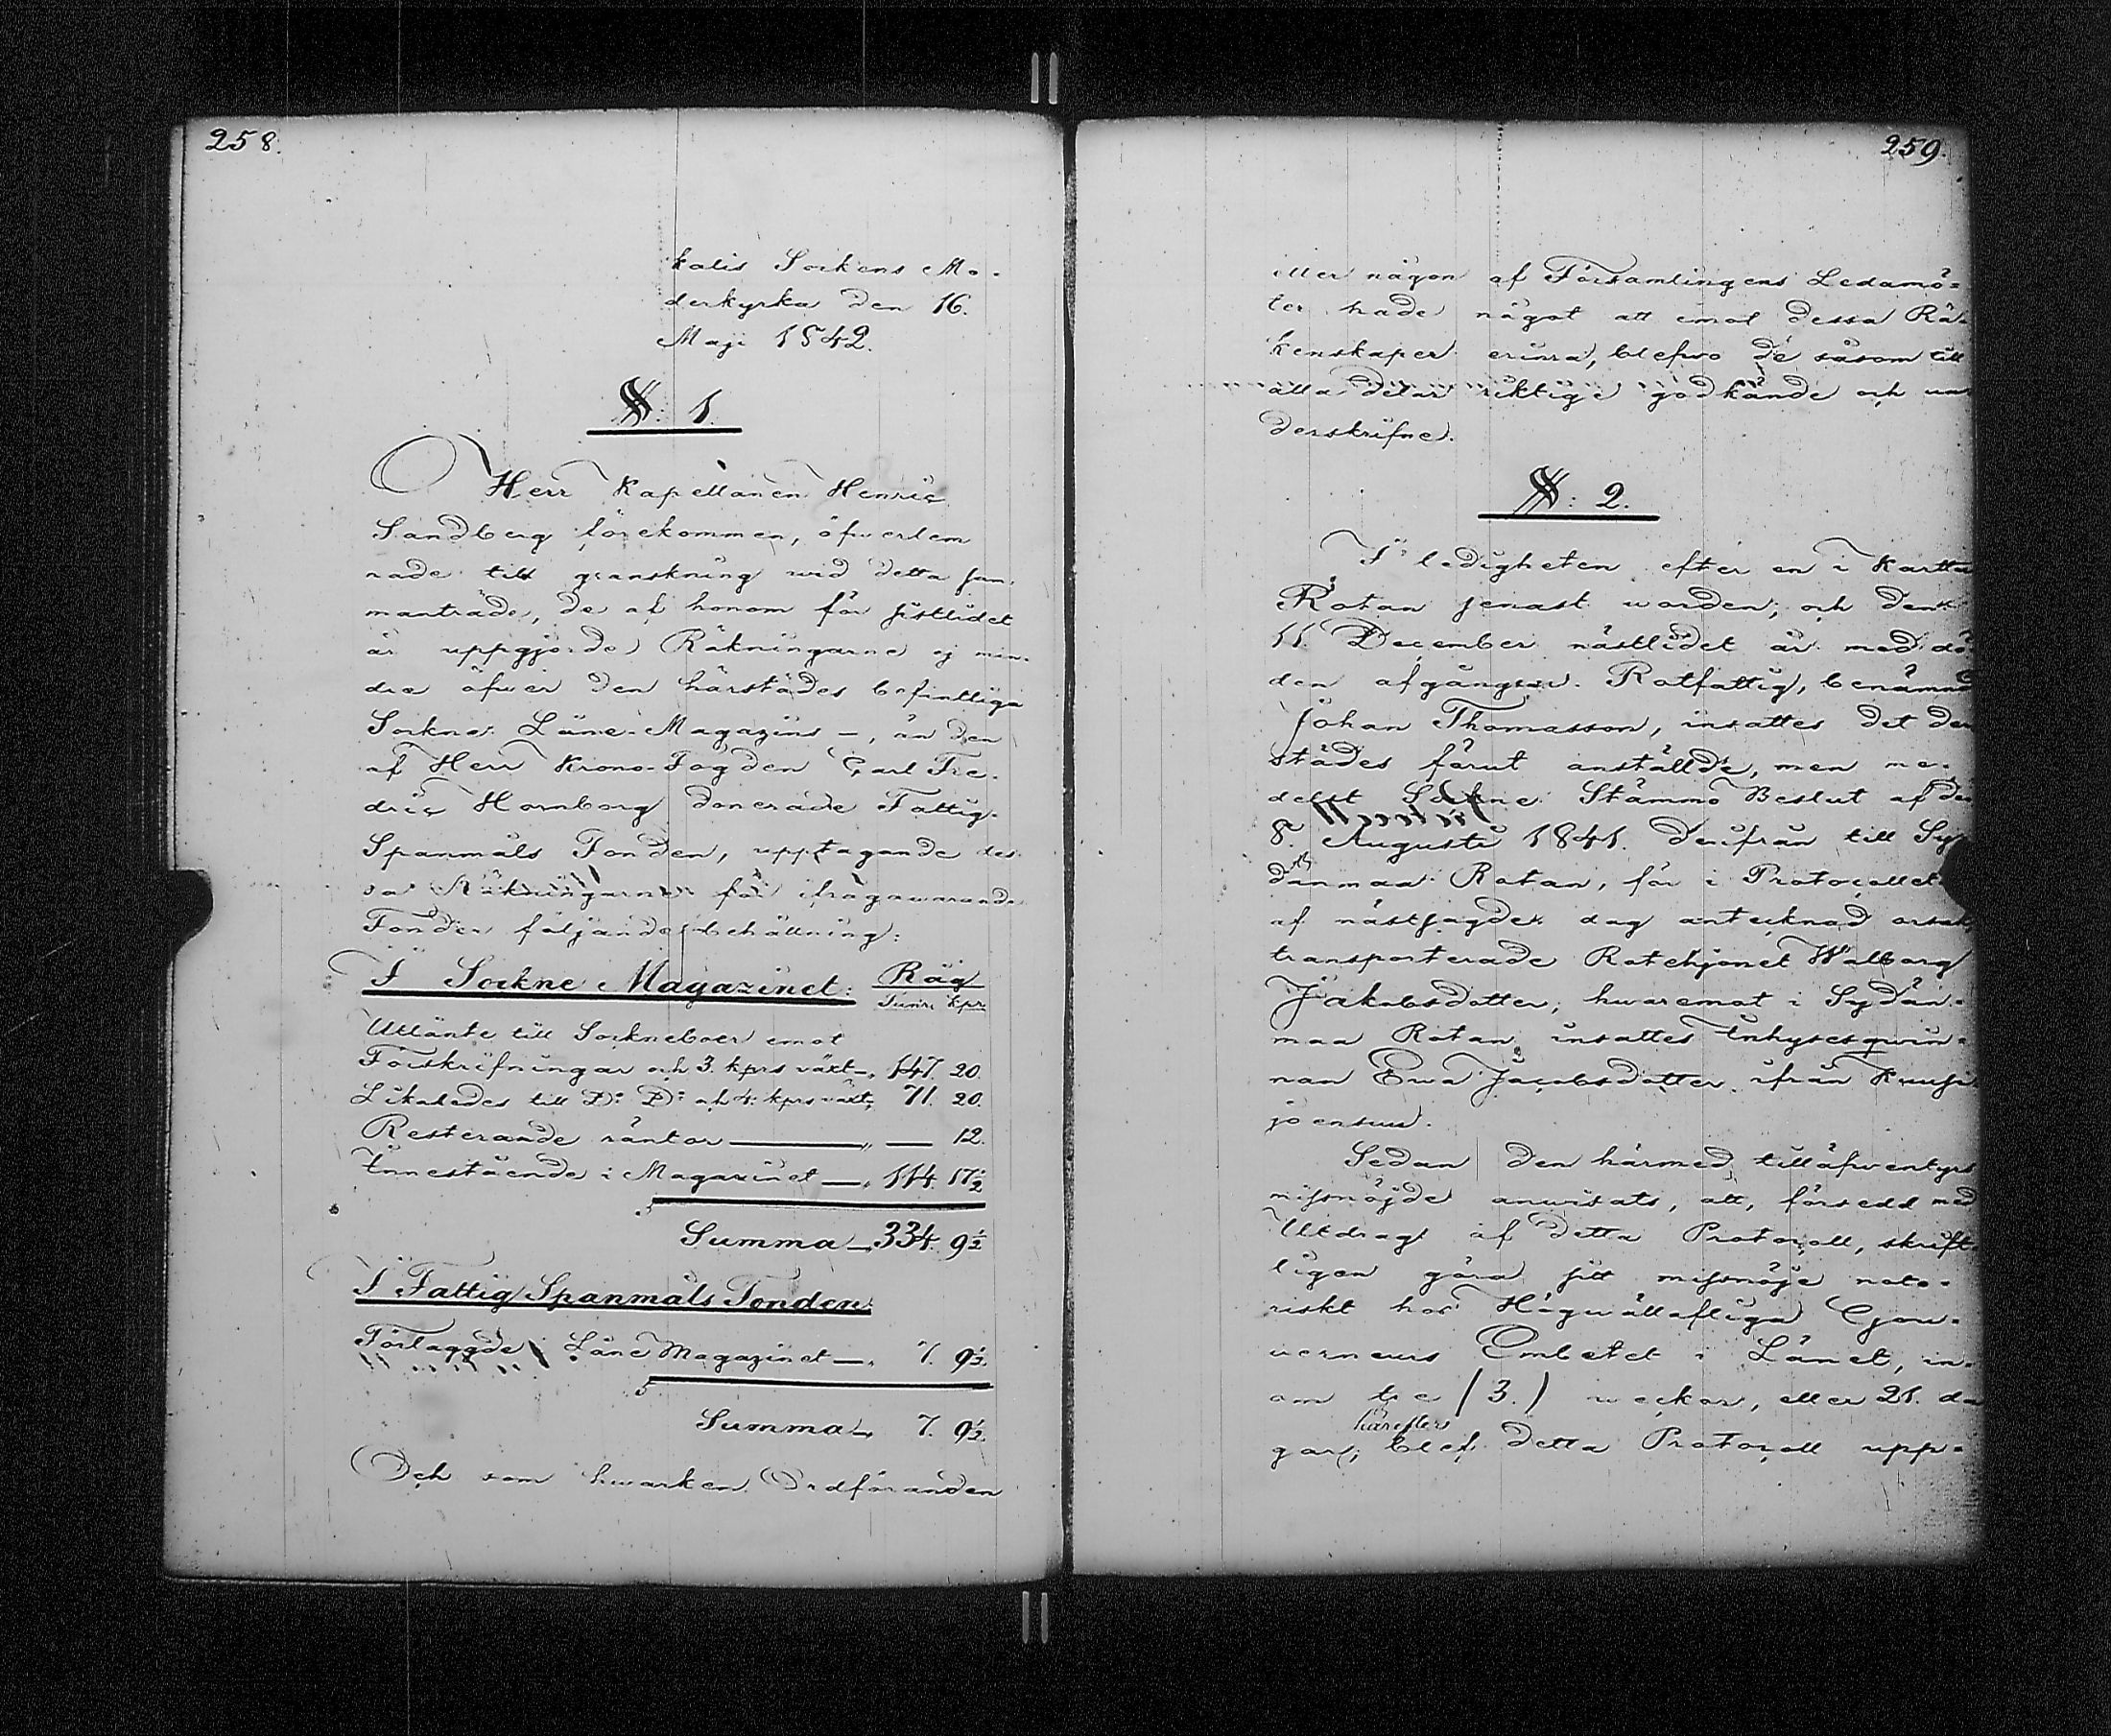 258.
kalis Sockens Mo-
derkyrka den 16.
Maji 1842.
§: 1.
Herr Kapellanen Henric
Sandberg förekommen, öfwerlem
nade till granskning wid detta sam-
manträde, de af honom för sistlidet
år uppgjorde Räkningarne ej min-
dre öfwer den härstädes befintliga
Sockne Låne-Magazins –, än den
af Herr Krono-Fogden Carl Fre-
dric Hornborg donerade Fattig-
Spanmåls Fonden, upptagande des-
sa Räkningarne för ifrågawarande
Fonder följande behållning:
I Sockne Magazinet: Råg
Tunnr kpr
Utlånte till Sockneboer emot
Förskrifningar och 3. kprs växt –„ 147. 20.
Likaledes till D:o D:o och 4: kprs växt„ 71. 20.
Resterande räntor —„ — 12.
Innestående i Magazinet —„ 114. 17½
Summa —„ 334. 9½
I Fattig Spanmåls Fonden:
Förlaggde i Låne Magazinet —„ 7. 9½.
Summa —„ 7. 9½.
Och som hwarken Ordföranden
259.
eller någon af Församlingens Ledamö-
ter hade något att emot dessa Rä-
kenskaper erinra, blefwo de såsom till
alla delar riktige godkände och un-
derskrifne.
§: 2.
I ledigheten efter en i Karttu
Rotan senast worden, och den
11. December nästlidet år med dö-
den afgången Rotfattig, benämnd
Johan Thomasson, insattes det der
städes förut anställde, men me-
delst Sockne Stämmo Beslut af den
8. Augusti 1841. derifrån till Sy-
dänmaa Rotan, för i Protocollet
af nästsagde dag antecknad orsak,
transporterade Rotehjonet Walborg
Jakobsdotter, hwaremot i Sydän-
maa Rotan insattes Inhysesqwin-
nan Ewa Jacobsdotter ifrån Kuusi-
joensuu.
Sedan den härmed tilläfwentyrs
missnöjde anwisats, att, försedd med
Utdrag af detta Protocoll, skrift-
ligen göra sitt missnöje noto-
riskt hos Högwällofliga Gou-
verneurs Embetet i Länet, in-
om tre (3.) weckor, eller 21. da
härefter
gar, blef detta Protocoll upp-